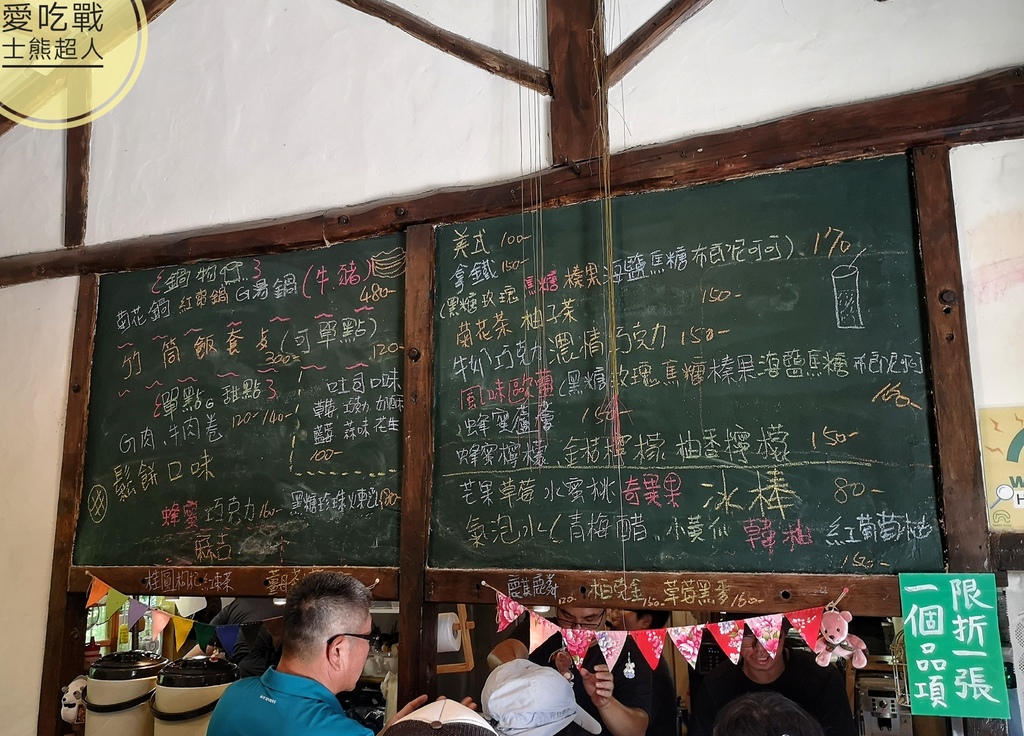 愛吃戰
士熊超人
鍋物
菊花鍋 紅棗鍋 G湯鍋(牛.豬)
480-
竹筒飯套餐(可單點)
300- 120-
單點G 甜點
120- 140-
G肉、牛肉卷
吐司口味
草莓 巧克力
藍莓 蒜味 花生
100-
鬆餅口味
蜂蜜 巧克力 160- 黑糖珍珠 180-
麻吉
桂圓枸杞紅棗茶
美式 100-
拿鐵 150-
(黑糖 玫瑰 焦糖 榛果 海鹽焦糖 布朗尼可可) 170
菊花茶 柚子茶 150-
牛奶巧克力 濃情巧克力 150-
風味歐蕾(黑糖 玫瑰 焦糖 榛果 海鹽焦糖 布朗尼可可
150-
蜂蜜蘆薈 150-
蜂蜜檸檬 金桔檸檬 柚香檸檬 150-
芒果 草莓 水蜜桃 奇異果 冰棒 80-
氣泡水(青梅醋 小黃瓜 韓柚 紅葡萄柚
150-
120- 柏克金 150- 草莓黑麥 160-
限折一張
一個品項